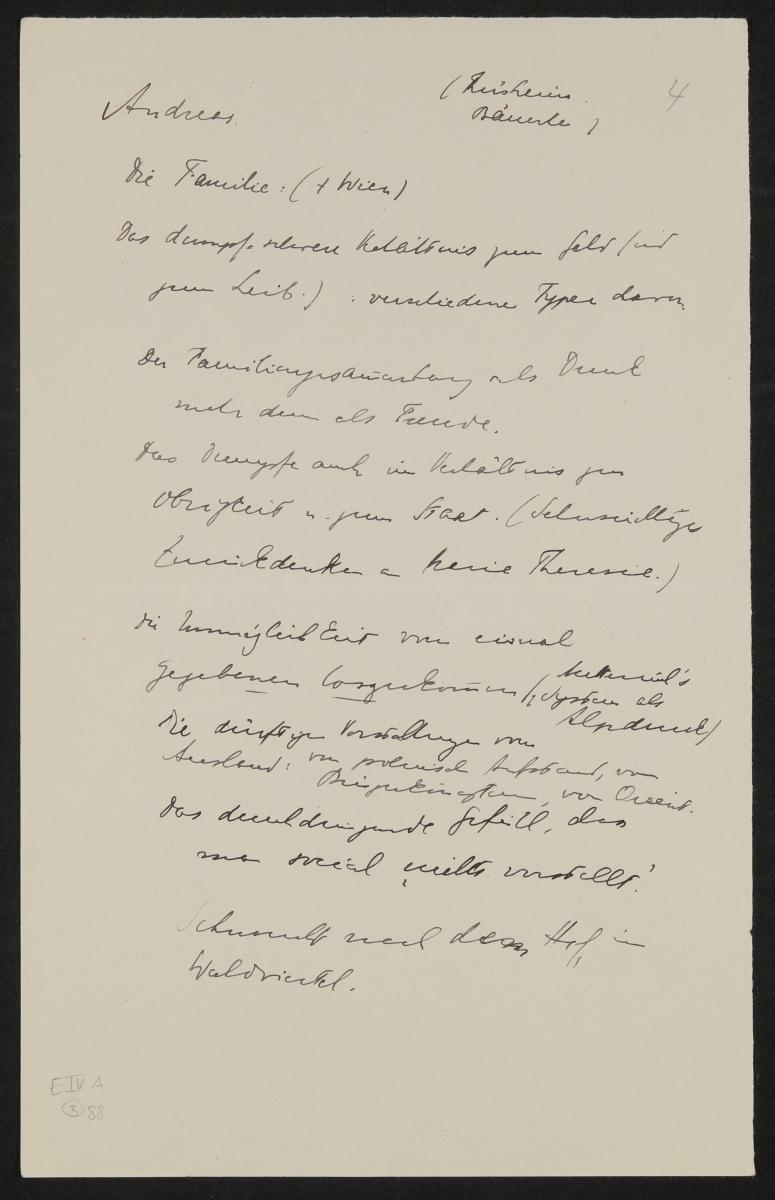 4
Andreas.
Bäuerle)
Die Familie: (+ Wien)
Das dumpfe schwere Verhältnis zum Geld (und
zum Leib.) : verschiedene Typen davon.
Der Familienzusammenhang als Druck
mehr denn als Freude.
Das Dumpfe auch im Verhältnis zur
Obrigkeit u. zum Staat. (Sehnsüchtiges
Zurückdenken an Maria Theresia.)
die Unmöglichkeit vom einmal
Gegebenen loszukommen (Metternich's
System als
Alpdruck)
Die dürftigen Vorstellungen vom
Ausland: vom polnischen Aufstand, von
, vom Orient.
Das durchdringende Gefühl, dass
man social „nichts vorstellt".
Sehnsucht nach dem Hof im
Waldviertel.
E IV A
3 88